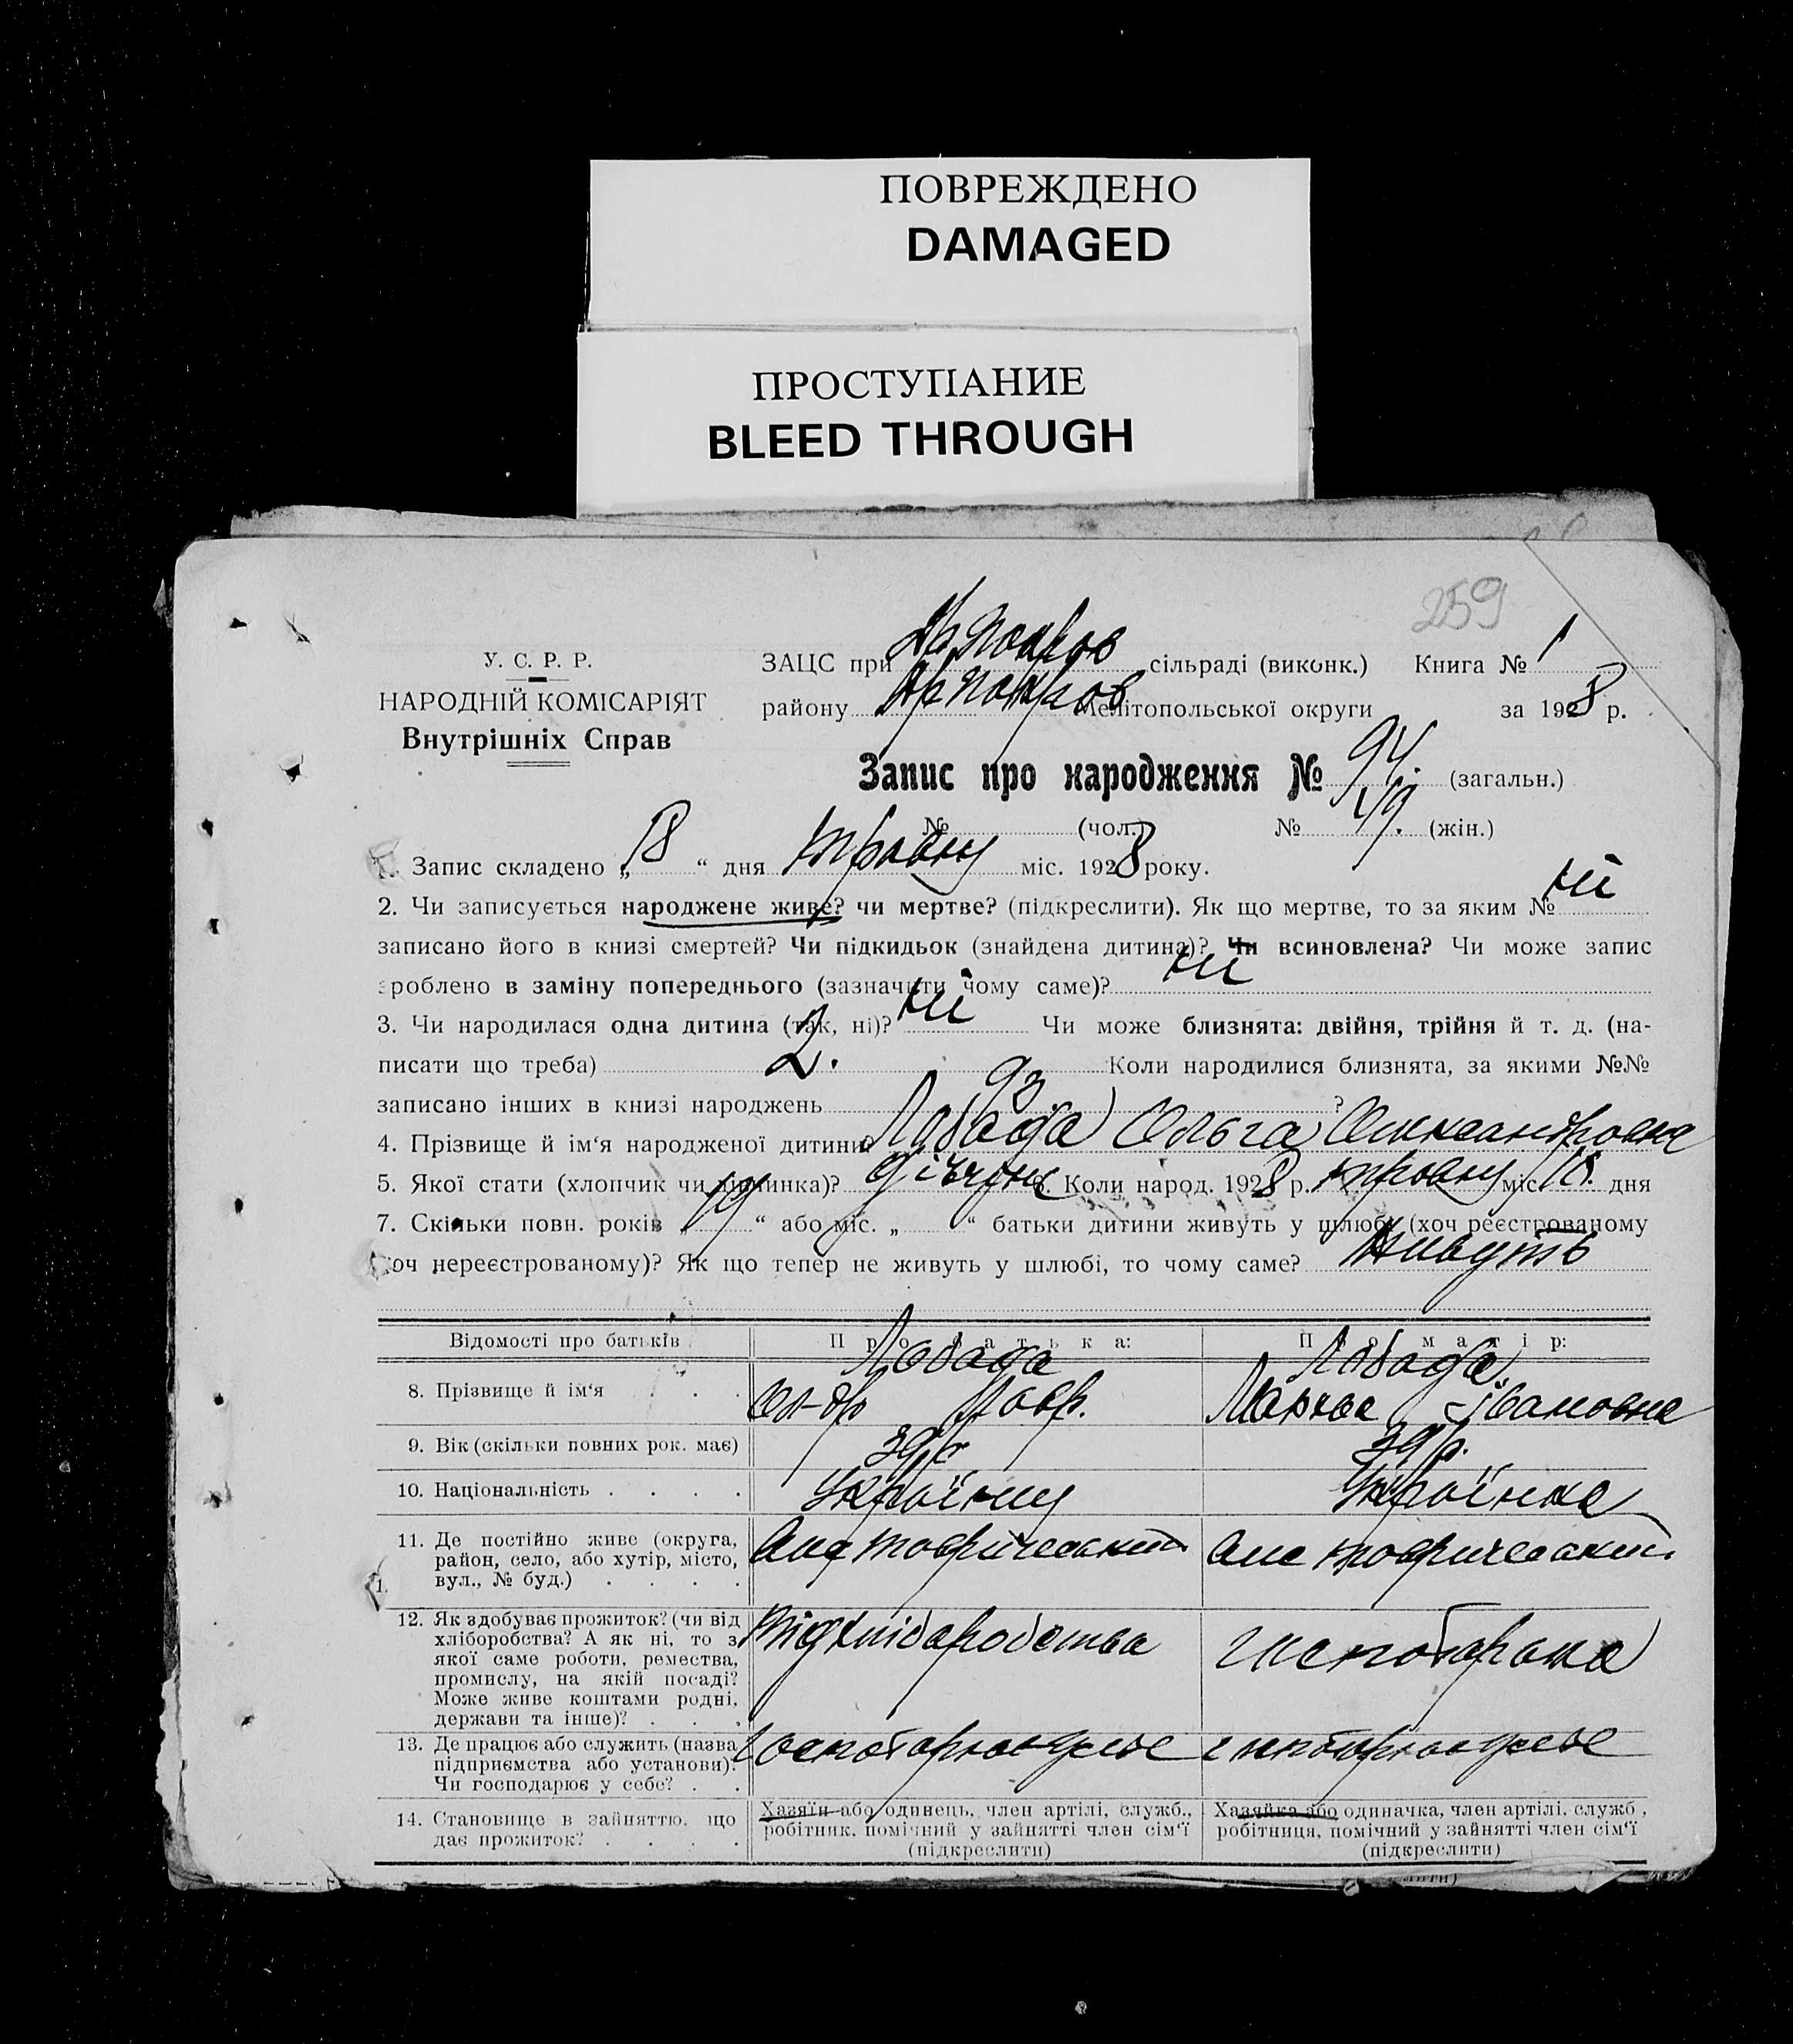 ПОВРЕЖДЕНО
DAMAGED
ПРОСТУПАНИЕ
BLEED THROUGH
259
У. С. Р. Р.
НАРОДНІЙ КОМІСАРІЯТ
Внутрішніх Справ
ЗАЦС при сільраді (виконк.) Книга № 1
району Мелітопольської округи за 1928 р.
Запис про народження № 94. (загальн.)
№ (чол.) № 49. (жін.)
1. Запис складено „18“ дня травню міс. 1928 року.
2. Чи записується народжене живе? чи мертве? (підкреслити). Як що мертве, то за яким № ні
записано його в книзі смертей? Чи підкидьок (знайдена дитина)? Чи всиновлена? Чи може запис
зроблено в заміну попереднього (зазначити чому саме)? ні
3. Чи народилася одна дитина (так, ні)? ні Чи може близнята: двійня, трійня й т. д. (на-
писати що треба) 2. Коли народилися близнята, за якими №№
записано інших в книзі народжень 93 ?
4. Прізвище й ім‘я народженої дитини? Лобада Ольга Олександровна
5. Якої стати (хлопчик чи дівчинка)? 6. Коли народ. 1928 р. травню міс. дня
7. Скільки повн. років „19“ або міс. „ “ батьки дитини живуть у шлюбі (хоч реєстрованому
хоч нереєстрованому)? Як що тепер не живуть у шлюбі, то чому саме? Живуть
Відомості про батьків Про батька: Про матір:
8. Прізвище й ім‘я . . . Лобада Ол-др Лавр. Лобада Івановна
9. Вік (скільки повних рок. має) 39 р. 39 р.
10. Національність . . . . Українец Українка
11. Де постійно живе (округа,
район, село, або хутір, місто,
вул., № буд.) . . . .
12. Як здобуває прожиток? (чи від
хліборобства? А як ні, то з
якої саме роботи, ремества,
промислу, на якій посаді?
Може живе коштами родні,
держави та інше)? . . .
13. Де працює або служить (назва
підприємства або установи)?
Чи господарює у себе? . .
14. Становище в зайняттю, що
дає прожиток? . . . .
Хазяїн або одинець, член артілі, служб.,
робітник, помічний у зайнятті член сім‘ї
(підкреслити)
Хазяйка або одиначка, член артілі, служб.,
робітниця, помічний у зайнятті член сім‘ї
(підкреслити)